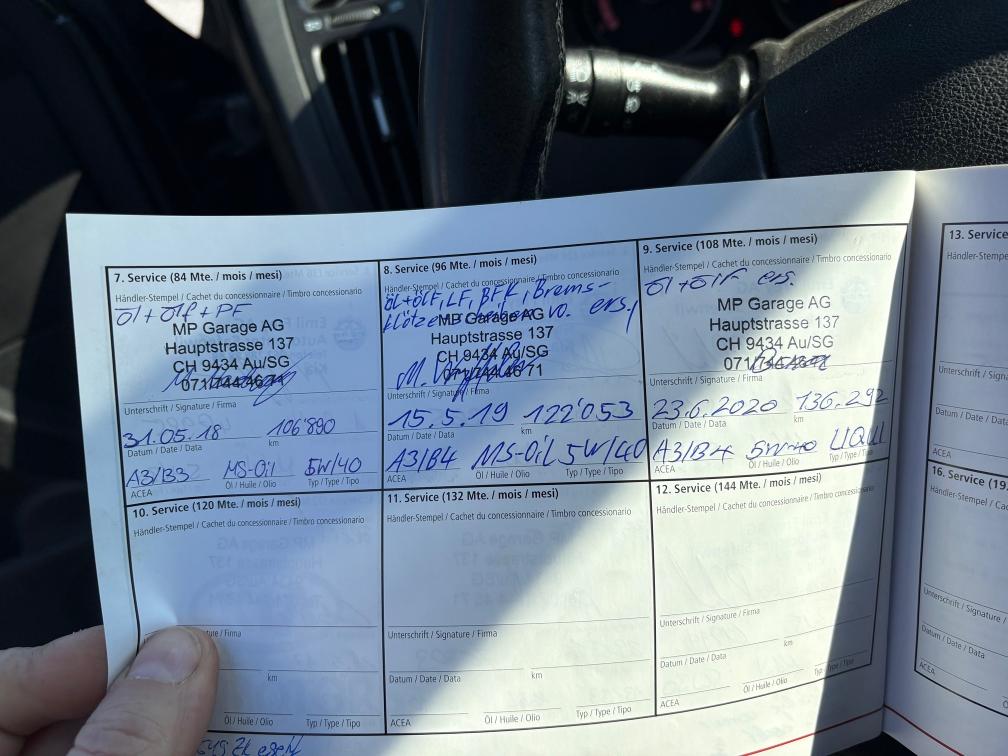 7. Service (84 Mte. / mois / mesi)
Händler-Stempel / Cachet du concessionnaire / Timbro concessionario
öl + ölf + PF
MP Garage AG
Hauptstrasse 137
CH 9434 Au/SG
071/744 46 71
Unterschrift / Signature / Firma
31.05.18 106'890
Datum / Date / Data km
A3/B3 MS-Oil 5W/40
ACEA Öl / Huile / Olio Typ / Type / Tipo
8. Service (96 Mte. / mois / mesi)
Händler-Stempel / Cachet du concessionnaire / Timbro concessionario
öl+ölf, LF, BFK, Brems-
klötze + scheiben vo. ers.
MP Garage AG
Hauptstrasse 137
CH 9434 Au/SG
071/744 46 71
Unterschrift / Signature / Firma
15.5.19 122'053
Datum / Date / Data km
A3/B4 MS-Oil 5W/40
ACEA Öl / Huile / Olio Typ / Type / Tipo
9. Service (108 Mte. / mois / mesi)
Händler-Stempel / Cachet du concessionnaire / Timbro concessionario
öl + ölf ers.
MP Garage AG
Hauptstrasse 137
CH 9434 Au/SG
071/744 46 71
Unterschrift / Signature / Firma
23.6.2020 136.292
Datum / Date / Data km
A3/B4 5W-40 LIQUI
ACEA Öl / Huile / Olio Typ / Type / Tipo
10. Service (120 Mte. / mois / mesi)
Händler-Stempel / Cachet du concessionnaire / Timbro concessionario
/ Firma
km
Öl / Huile / Olio Typ / Type / Tipo
11. Service (132 Mte. / mois / mesi)
Händler-Stempel / Cachet du concessionnaire / Timbro concessionario
Unterschrift / Signature / Firma
Datum / Date / Data km
ACEA Öl / Huile / Olio Typ / Type / Tipo
12. Service (144 Mte. / mois / mesi)
Händler-Stempel / Cachet du concessionnaire / Timbro concessionario
Unterschrift / Signature / Firma
Datum / Date / Data km
ACEA Öl / Huile / Olio Typ / Type / Tipo
13. Service
Händler-Stempe
Unterschrift / Signa
Datum / Date / Data
ACEA
16. Service (19
Händler-Stempel / Ca
Unterschrift / Signature /
Datum / Date / Data
ACEA